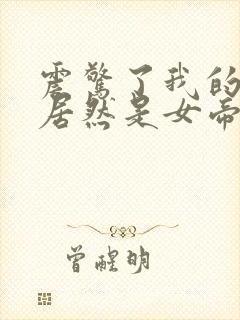 震惊了我的
居然是女帝
曾醒明